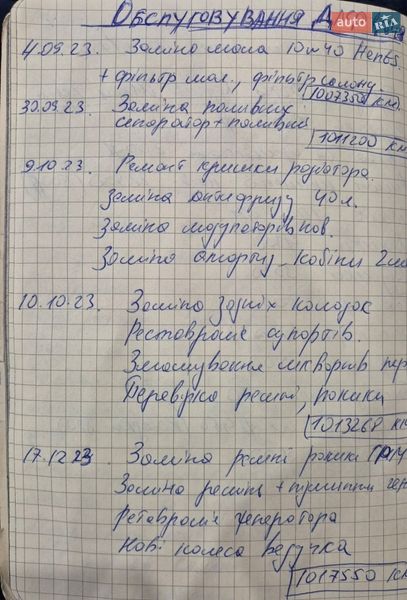 Обслуговування Д
auto RIA
4.09.23. Заміна масла 10w40 Hemps.
+ фільтр мал., фільтр салону.
1007350 км
30.09.23. Заміна паливних
сепаратор + паливний
1011200 км
9.10.23. Ремонт кришки радіатора.
Заміна антифризу 40л.
Заміна модуляторів нов.
Заміна аморту. кабіни 2шт
10.10.23. Заміна задніх колодок
Реставрація супортів.
Змащування шкворнів пер
Перевірка ремені, ролики
1013268 км
17.12.23 Заміна ремені ролики ГРМ
Заміна ремінь +
Реставрація генератора
Нові колеса ведучка
1017550 км